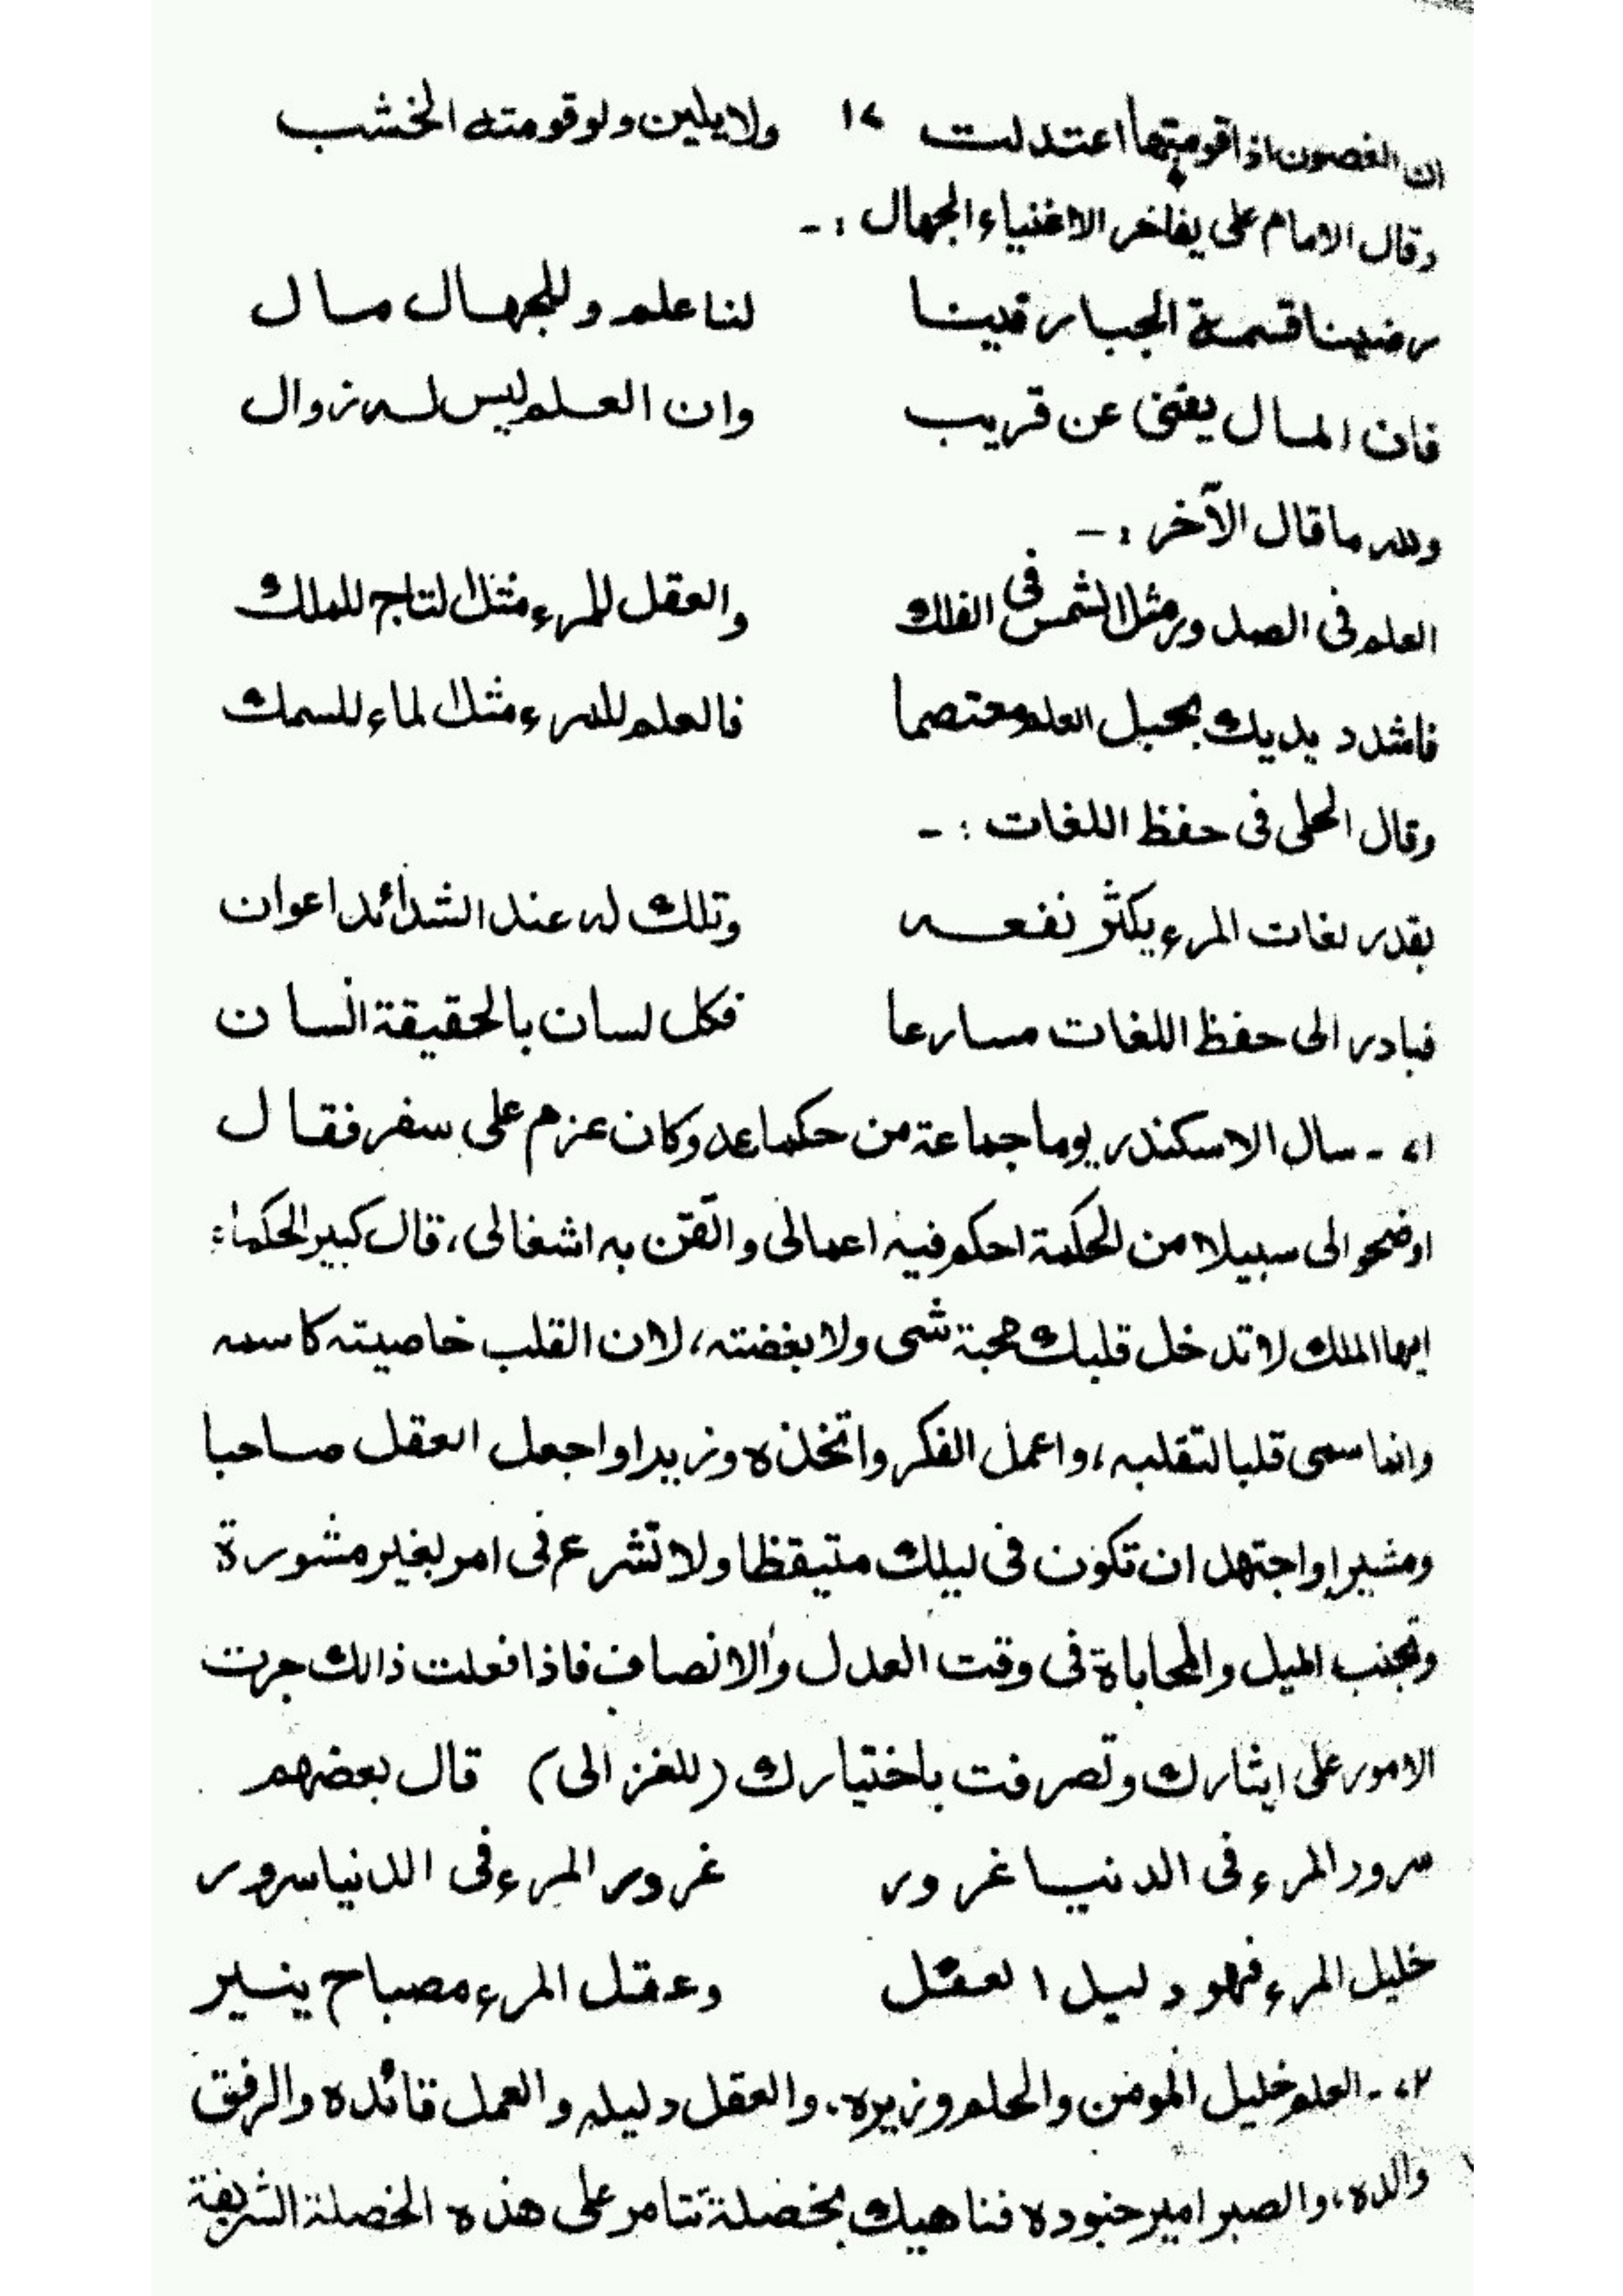 ان الغصون اذا قومتها اعتدلت ١٧ ولا يلين ولو قومته الخشب
وقال الامام على يفاخر الاغنياء الجهال :-
رضينا قسمة الجبار فينا لنا علم وللجهال مال
فان المال يفنى عن قريب وان العلم ليس له زوال
ولله ما قال الآخر :-
العلم فى الصدور مثل الشمس فى الفلك والعقل للمرء مثل التاج للملك
فاشدد يديك بحبل العلم معتصما فالعلم للمرء مثل الماء للسمك
وقال الحلى فى حفظ اللغات :-
بقدر لغات المرء يكثر نفعه وتلك له عند الشدائد اعوان
فبادر الى حفظ اللغات مسارعا فكل لسان بالحقيقة انسان
- سال الاسكندر يوما جماعة من حكماءه وكان عزم على سفر فقال
اوضحوا لى سبيلا من الحكمة احكم فيه اعمالى واتقن به اشغالى، قال كبير الحكماء:
ايها الملك لا تدخل قلبك محبة شى ولا بغضته، لان القلب خاصيته كاسمه
وانما سمى قلبا لتقلبه، واعمل الفكر واتخذه وزيرا واجعل العقل صاحبا
ومشيرا واجتهد ان تكون فى ليلك متيقظا ولا تشرع فى امر بغير مشورة
وتجنب الميل والمحاباة فى وقت العدل والانصاف فاذا فعلت ذالك جرت
الامور على ايثارك وتصرفت باختيارك (للغزالى) قال بعضهم
سرور المرء فى الدنيا غرور غرور المرء فى الدنيا سرور
خليل المرء فهو دليل العقل وعقل المرء مصباح ينير
- العلم خليل المومن والحلم وزيره. والعقل دليله والعمل قائده والرفق
والده، والصبر امير جنوده فناهيك بخصلة تتامر على هذه الخصلة الشريفة